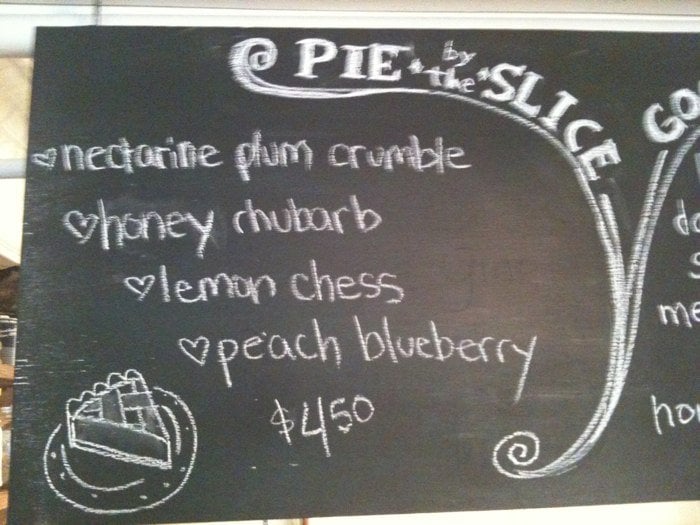 PIE by the SLICE
nectarine plum crumble
honey rhubarb
lemon chess
peach blueberry
$4.50
GO
me